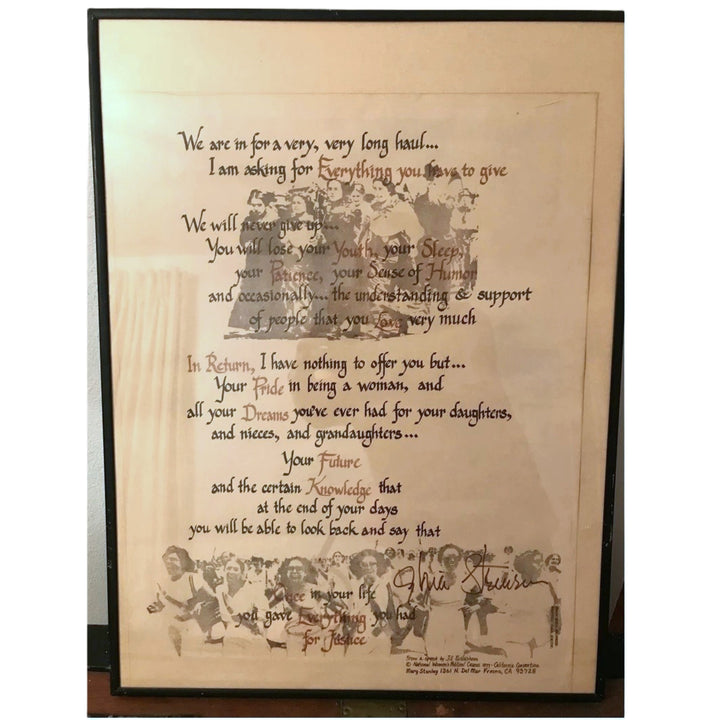 We are in for a very, very long haul...
I am asking for Everything you have to give
We will never give up...
You will lose your Youth, your Sleep,
your Patience, your Sense of Humor
and occasionally... the understanding & support
of people that you Love very much
In Return, I have nothing to offer you but...
Your Pride in being a woman, and
all your Dreams you've ever had for your daughters,
and nieces, and grandaughters...
Your Future
and the certain Knowledge that
at the end of your days
you will be able to look back and say that
Once in your life
you gave Everything you had
for Justice
From a speech by Jill
© National Women's Political Caucus 1977 - California Convention
Mary Stanley 1261 N. Del Mar Fresno, CA 93728